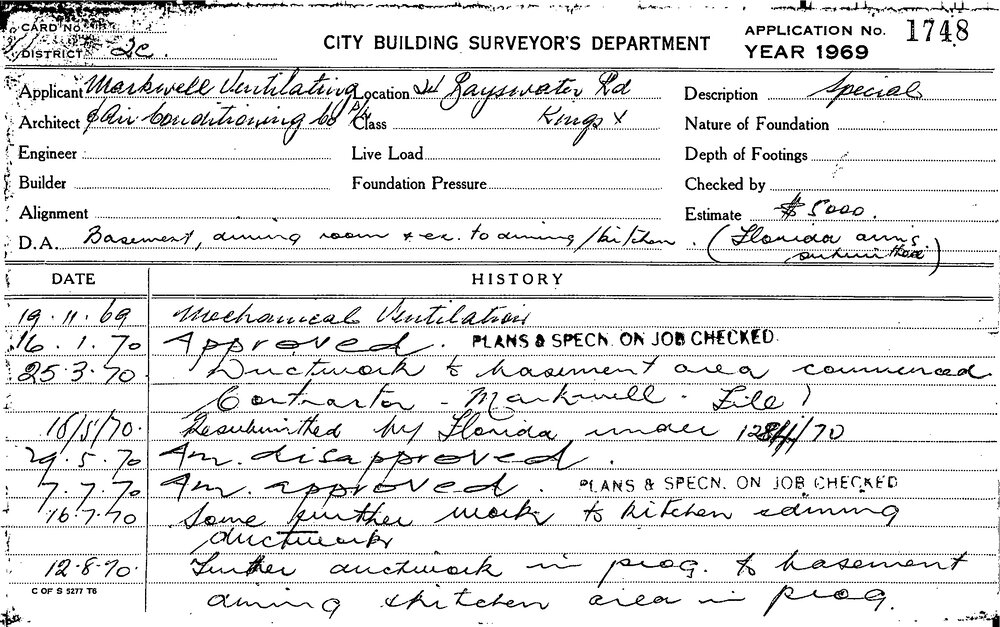 CARD No.
CITY BUILDING SURVEYOR'S DEPARTMENT
APPLICATION No. 1748
DISTRICT 2c.
YEAR 1969
Applicant Markwell Ventilating Location Bayswater Rd Description Special
Architect & Air Conditioning Co P/L Class Kings X Nature of Foundation
Engineer Live Load Depth of Footings
Builder Foundation Pressure Checked by
Alignment Estimate $ 5000.
D.A. Basement, dining room & ex. to dining/kitchen. (Florida
DATE HISTORY
19.11.69 Mechanical Ventilation
16.1.70 Approved. PLANS & SPECN. ON JOB CHECKED
25.3.70. Ductwork to basement area commenced
Contractor - Markwell - File)
18/5/70. Resubmitted by Florida under /70
29.5.70 Am. disapproved.
7.7.70 Am. approved. PLANS & SPECN. ON JOB CHECKED
16.7.70 Some further work to kitchen & dining
ductwork
12.8.70. Further ductwork in prog. to basement
C OF S 5277 T6
dining & kitchen area in prog.